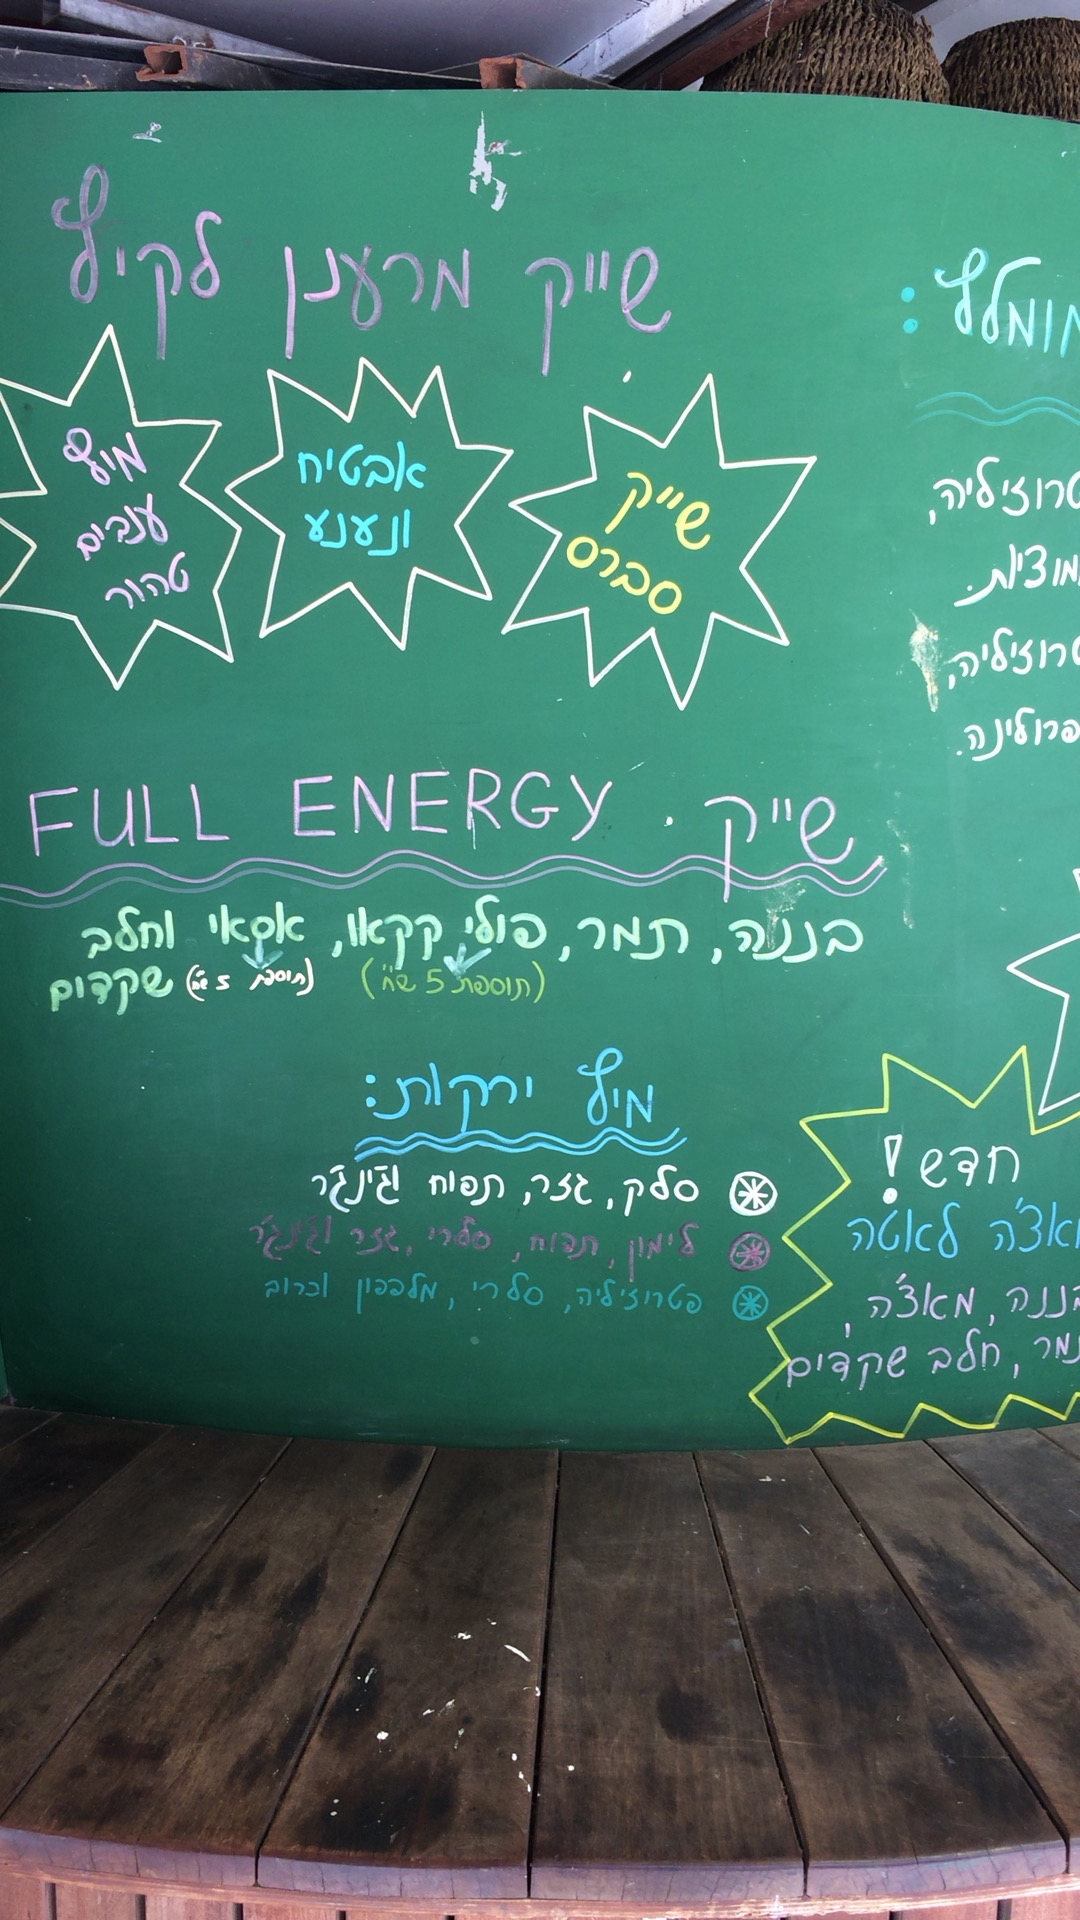 שייק מרענן לקיץ
שייק
סברס
אבטיח
ונענע
מיץ
ענבים
טהור
שייק . FULL ENERGY
בננה, תמר, פולי קקאו, אסאי וחלב
שקדים (תוספת 5 ש"ח) (תוספת 5 ש"ח)
מיץ ירקות:
סלק, גזר, תפוח וג'ינג'ר
לימון, תפוח, סלרי, גזר וג'ינג'ר
פטרוזיליה, סלרי, מלפפון וכרוב
מומלץ:
טרוזיליה,
מוציות.
טרוזיליה,
פרולינה.
חדש!
מאצ'ה לאטה
בננה, מאצ'ה,
תמר, חלב שקדים